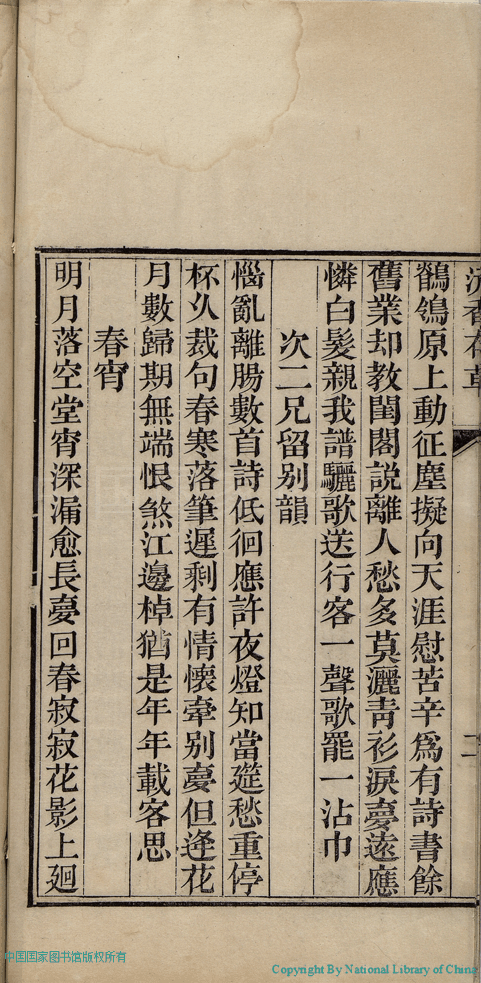 鶺鴒原上動征塵擬向天涯慰苦辛爲有詩書餘
舊業却教閨閣說離人愁多莫灑靑衫淚夢遠應
憐白髮親我譜驪歌送行客一聲歌罷一沾巾
次二兄留別韻
惱亂離腸數首詩低徊應許夜燈知當筵愁重停
杯久裁句春寒落筆遲剩有情懷牽別夢但逢花
月數歸期無端恨煞江邊棹猶是年年載客思
春宵
明月落空堂宵深漏愈長夢回春寂寂花影上廻
二
中国国家图书馆版权所有
Copyright By National Library of China